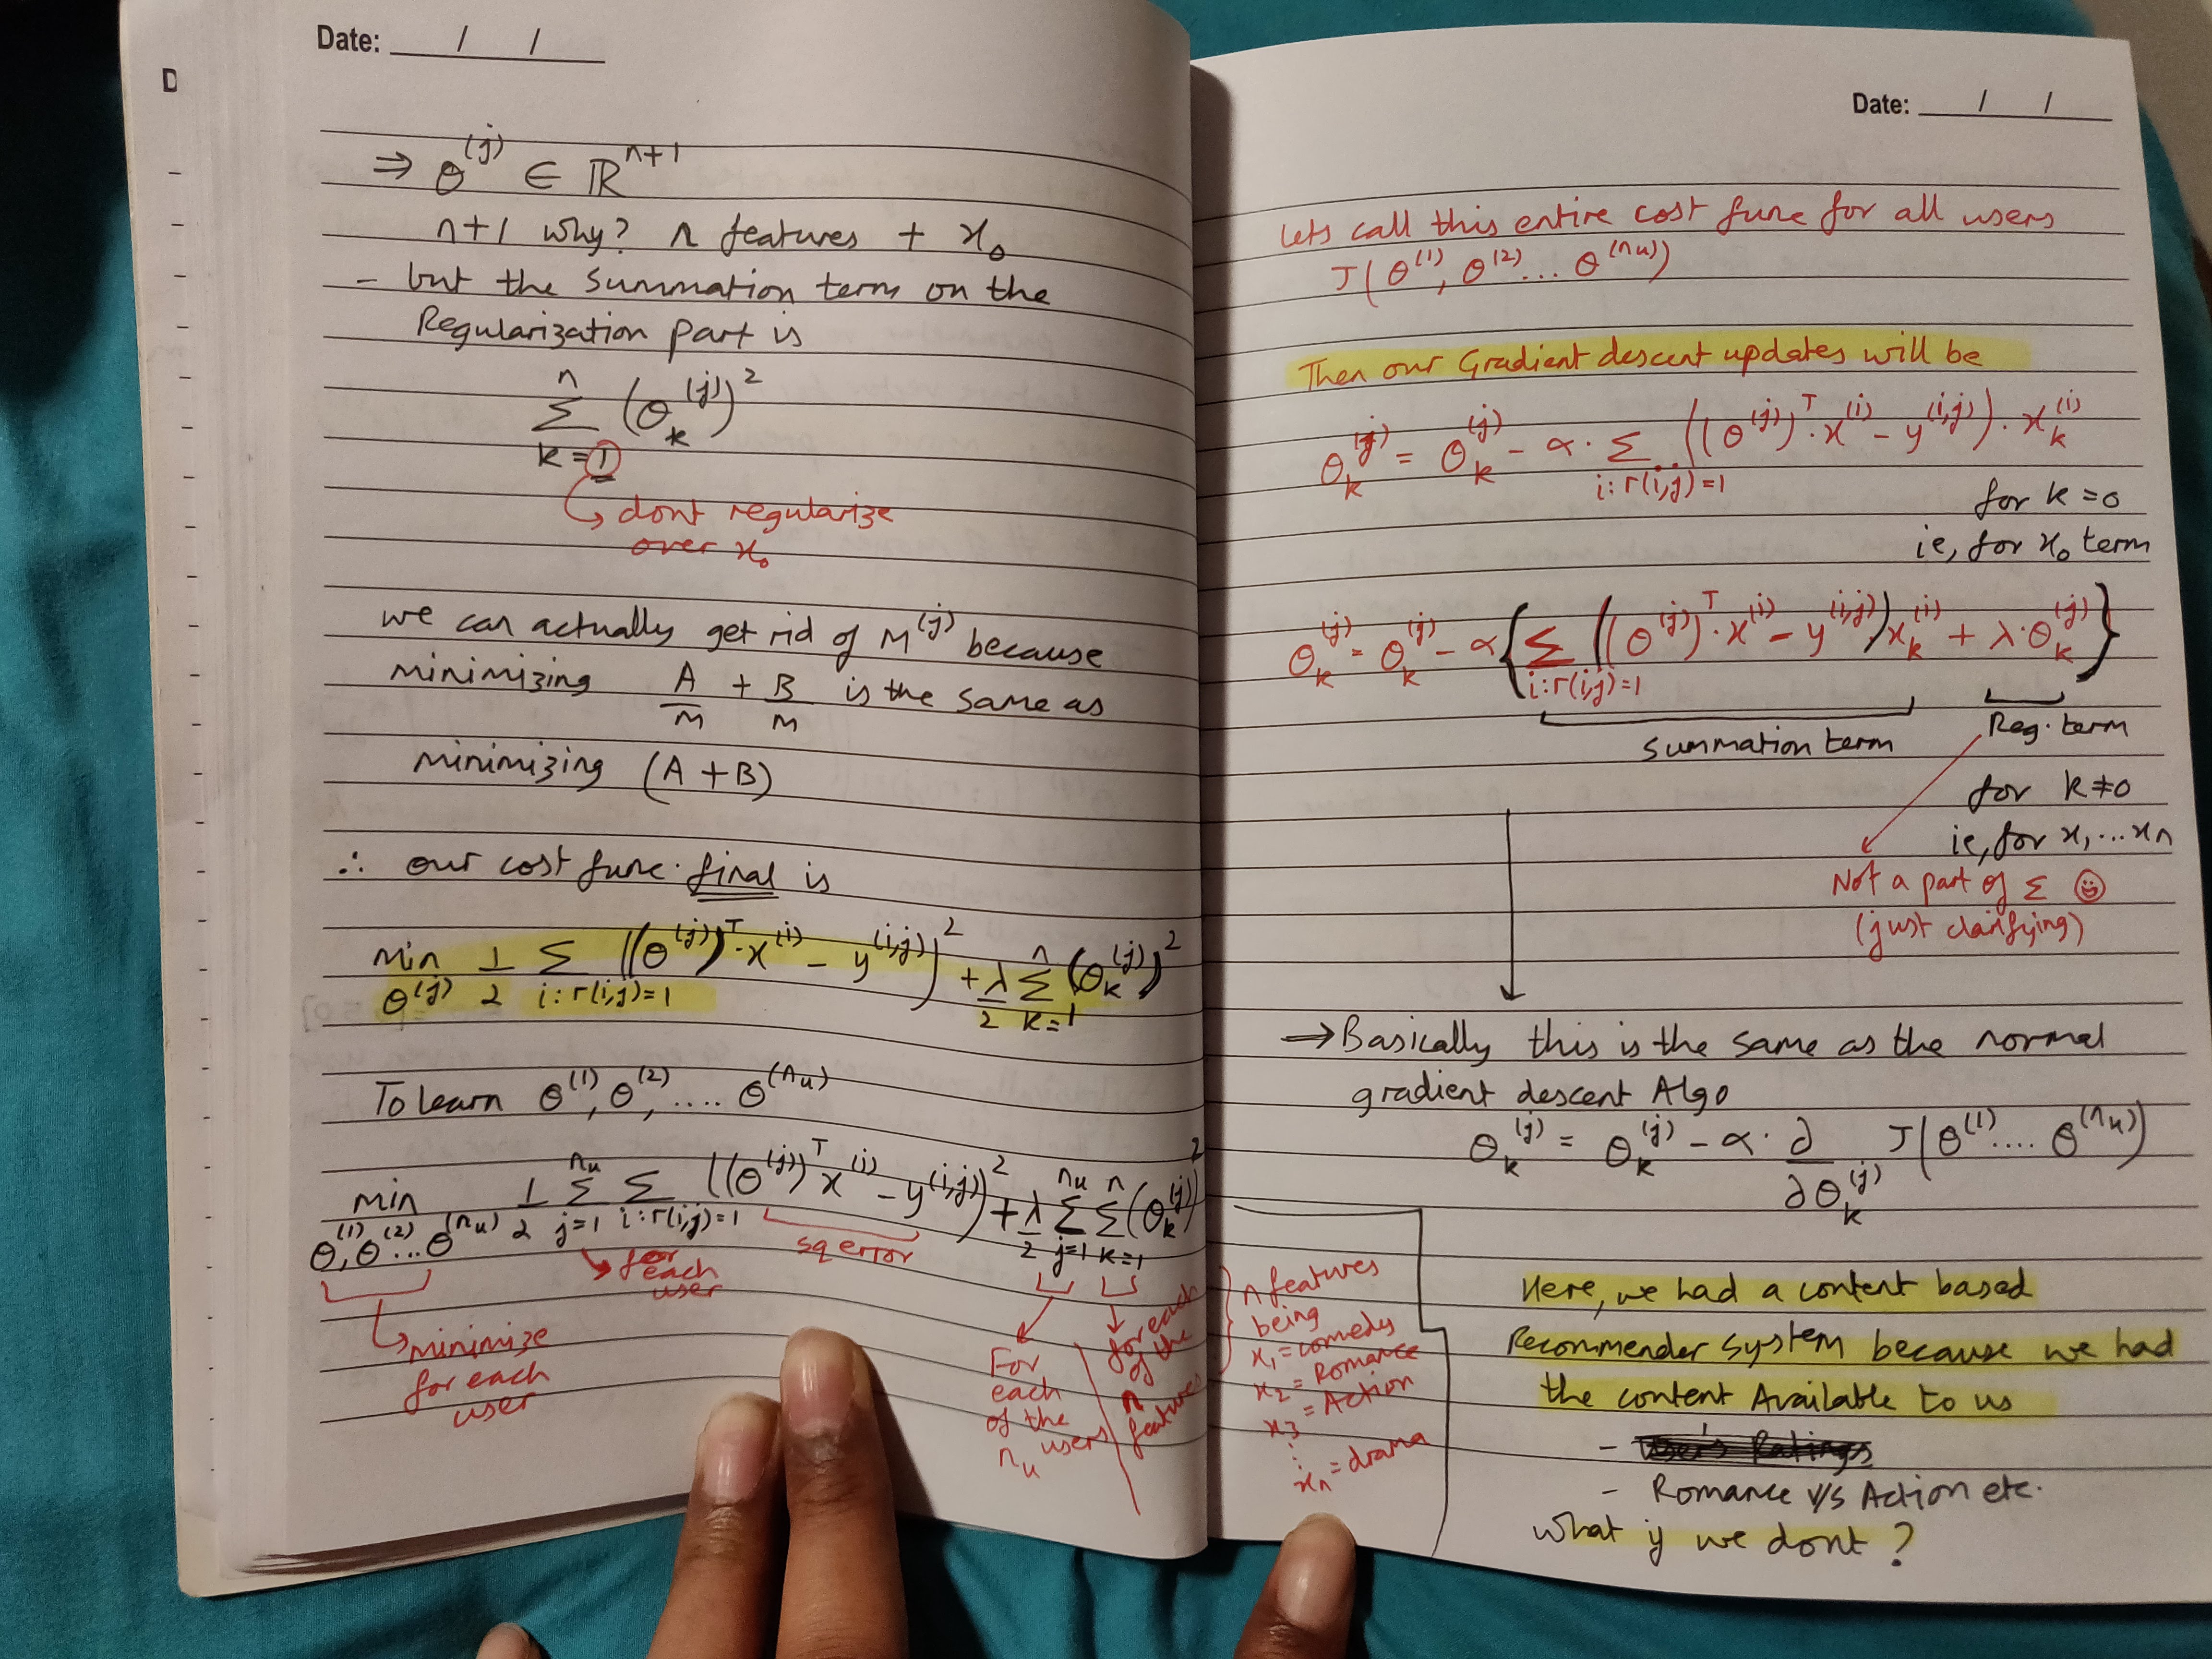 Date: __/__/__
D
⇒ θ^(j) ∈ ℝ^n+1
n+1 why? n features + x₀
- but the summation term on the
Regularization part is
n
Σ (θ_k^(j))²
k=1
↳ dont regularize
over x₀
we can actually get rid of M^(j) because
minimizing A/M + B/M is the same as
minimizing (A + B)
∴ our cost func. final is
min_θ^(j) 1/2 Σ_{i:r(i,j)=1} ((θ^(j))^T · x^(i) - y^(i,j))² + λ/2 Σ_{k=1}^n (θ_k^(j))²
To learn θ^(1), θ^(2), .... θ^(n_u)
min_{θ^(1), θ^(2) ... θ^(n_u)} 1/2 Σ_{j=1}^{n_u} Σ_{i:r(i,j)=1} ((θ^(j))^T x^(i) - y^(i,j))² + λ/2 Σ_{j=1}^{n_u} Σ_{k=1}^n (θ_k^(j))²
↳ minimize
for each
user
↳ for
each
user
sq error
For
each
of the
n_u users
for each
of the
n
features
Date: __/__/__
Lets call this entire cost func for all users
J(θ^(1), θ^(2) ... θ^(n_u))
Then our Gradient descent updates will be
θ_k^(j) = θ_k^(j) - α · Σ_{i:r(i,j)=1} ((θ^(j))^T · x^(i) - y^(i,j)) · x_k^(i)
for k = 0
ie, for x₀ term
θ_k^(j) = θ_k^(j) - α { Σ_{i:r(i,j)=1} ((θ^(j))^T · x^(i) - y^(i,j)) x_k^(i) + λ · θ_k^(j) }
summation term
Reg. term
for k ≠ 0
ie, for x₁ ... xₙ
Not a part of Σ ☺
(just clarifying)
→ Basically this is the same as the normal
gradient descent Algo
θ_k^(j) = θ_k^(j) - α · ∂/∂θ_k^(j) J(θ^(1) .... θ^(n_u))
n features
being
x₁ = comedy
x₂ = Romance
x₃ = Action
⋮
xₙ = drama
Here, we had a content based
Recommender system because we had
the content Available to us
- User's Ratings
- Romance v/s Action etc.
what if we dont ?